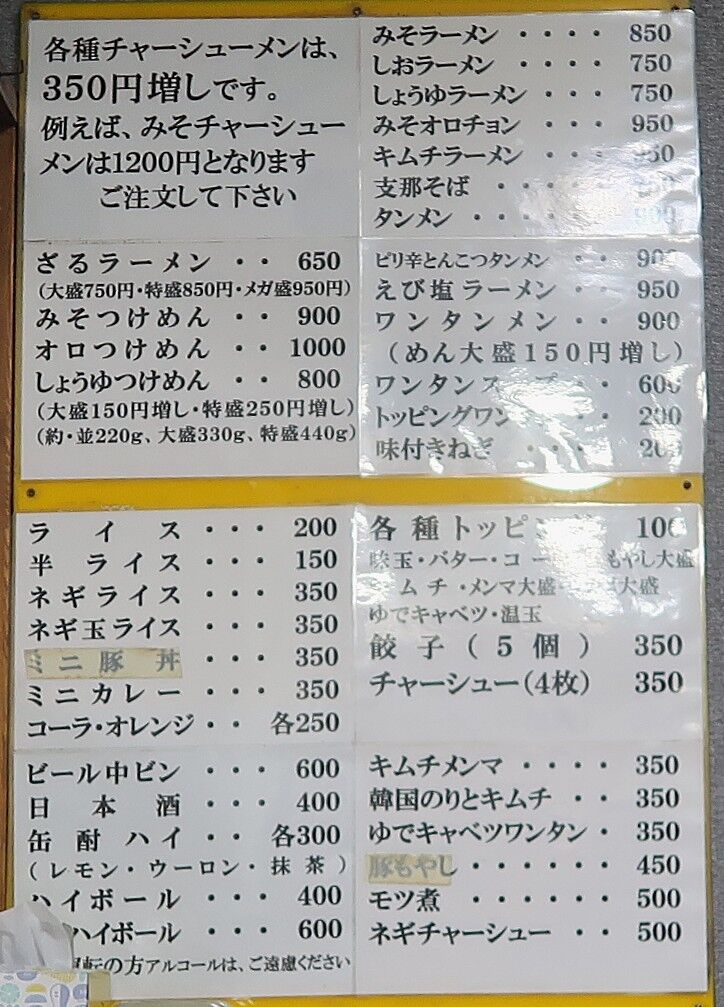 各種チャーシューメンは、
350円増しです。
例えば、みそチャーシュー
メンは1200円となります
ご注文して下さい
みそラーメン ・・・・ 850
しおラーメン ・・・・ 750
しょうゆラーメン ・・・ 750
みそオロチョン ・・・ 950
キムチラーメン ・・・
支那そば ・・・・・
タンメン ・・・・
ざるラーメン ・・ 650
(大盛750円・特盛850円・メガ盛950円)
みそつけめん ・・ 900
オロつけめん ・・ 1000
しょうゆつけめん ・・ 800
(大盛150円増し・特盛250円増し)
(約・並220g、大盛330g、特盛440g)
ピリ辛とんこつタンメン ・・ 900
えび塩ラーメン ・・ 950
ワンタンメン ・・ 900
(めん大盛150円増し)
ワンタンスープ ・・ 600
トッピングワン 200
味付きねぎ ・・・・ 200
ライス ・・・ 200
半ライス ・・・ 150
ネギライス ・・・ 350
ネギ玉ライス ・・・ 350
ミニ豚丼 ・・・ 350
ミニカレー ・・・ 350
コーラ・オレンジ ・・ 各250
各種トッピング 100
味玉・バター・コー もやし大盛
キムチ・メンマ大盛・ 大盛
ゆでキャベツ・温玉
餃子(5個) 350
チャーシュー(4枚) 350
ビール中ビン ・・・ 600
日本酒 ・・・ 400
缶酎ハイ ・・ 各300
(レモン・ウーロン・抹茶)
ハイボール ・・・ 400
ハイボール ・・・ 600
運転の方アルコールは、ご遠慮ください
キムチメンマ ・・・・ 350
韓国のりとキムチ ・・ 350
ゆでキャベツワンタン・ 350
豚もやし ・・・・・・ 450
モツ煮 ・・・・・・ 500
ネギチャーシュー ・・ 500